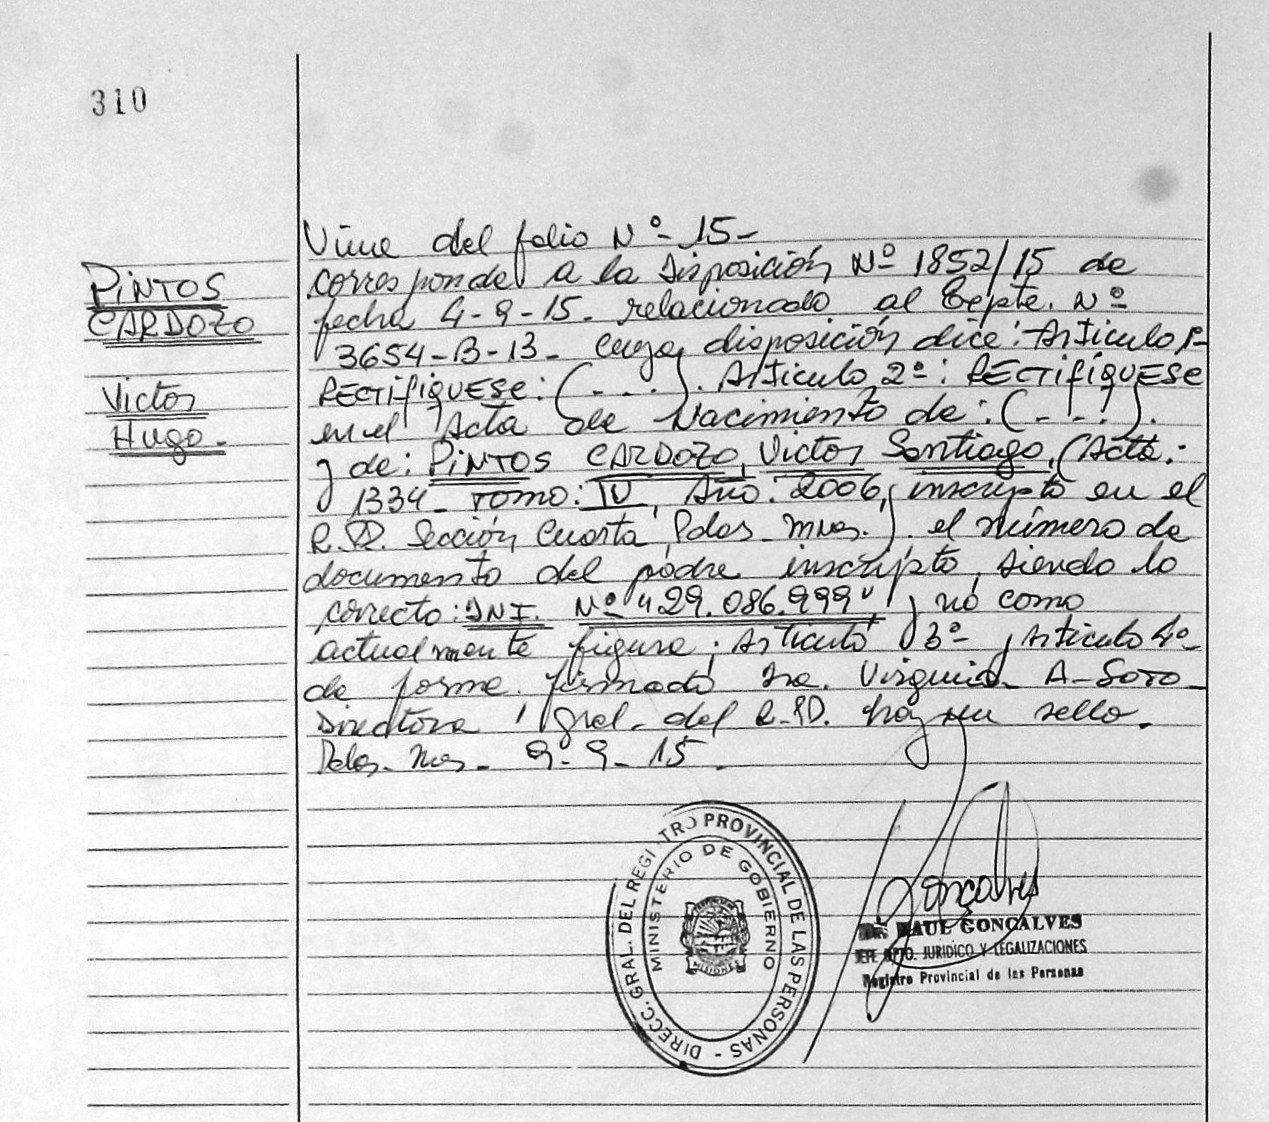 310
PINTOS
CARDOZO
Victor
Hugo.-
Viene del folio Nº- 15-
corresponde a la Disposición Nº 1852/15 de
fecha 4-9-15- relacionado al Expte. Nº
3654-B-13- cuya disposición dice: Artículo 1º-
RECTIFIQUESE: (....). Artículo 2º: RECTIFIQUESE
en el Acta de Nacimiento de: (....).
y de: PINTOS CARDOZO, Victor Santiago, (Acta:
1334- Tomo: IV, Año: 2006, inscripto en el
R.P. Sección Cuarta, Pdas. Mnes.), el número de
documento del padre inscripto, siendo lo
correcto: DNI. Nº "29.086.999" y no como
actualmente figura; Artículo 3º-, Artículo 4º-
de forma. firmado Dra. Virginia A- Soto-
Directora Gral- del R.P. hay un sello.
Pdas- Mes- 9-9-15.
DIRECC. GRAL. DEL REGI TRO PROVINCIAL DE LAS PERSONAS -
MINISTERIO DE GOBIERNO
MISIONES
Gonçalves
Dr. RAUL GONCALVES
JEFE DPTO. JURIDICO Y LEGALIZACIONES
Registro Provincial de las Personas